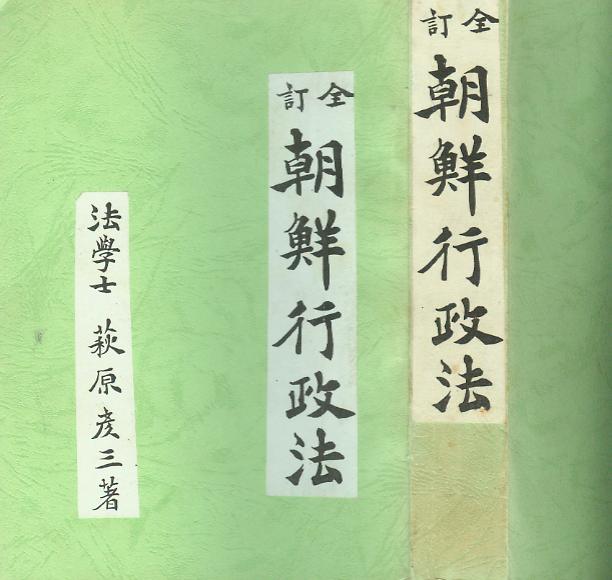 全訂
朝鮮行政法
全訂
朝鮮行政法
法學士 萩原彦三著